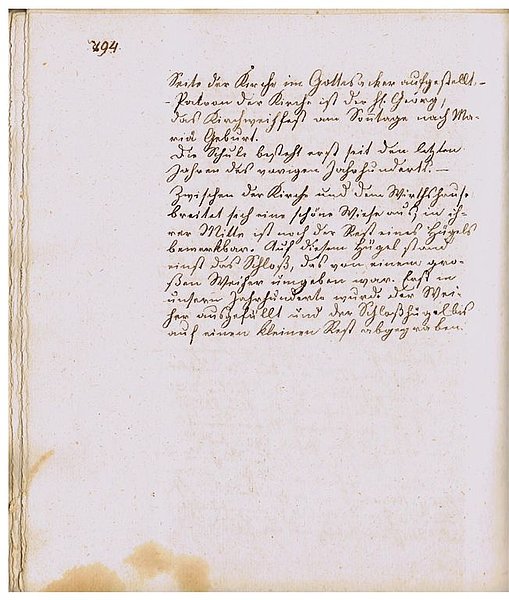 494.
Seite der Kirche im Gottesacker aufgestellt. –
– Patron der Kirche ist der hl. Georg,
das Kirchweihfest am Sonntage nach Ma-
riä Geburt.
Die Schule besteht erst seit den letzten
Jahren des vorigen Jahrhunderts. –
Zwischen der Kirche und dem Wirthshause
breitet sich eine schöne Wiese aus; in ih-
rer Mitte ist noch der Rest eines Hügels
bemerkbar. Auf diesem Hügel stand
einst das Schloß, das von einem gro-
ßen Weiher umgeben war. Erst in
unserm Jahrhunderte wurde der Wei-
her ausgefüllt und der Schloßhügel bis
auf einen kleinen Rest abgegraben.